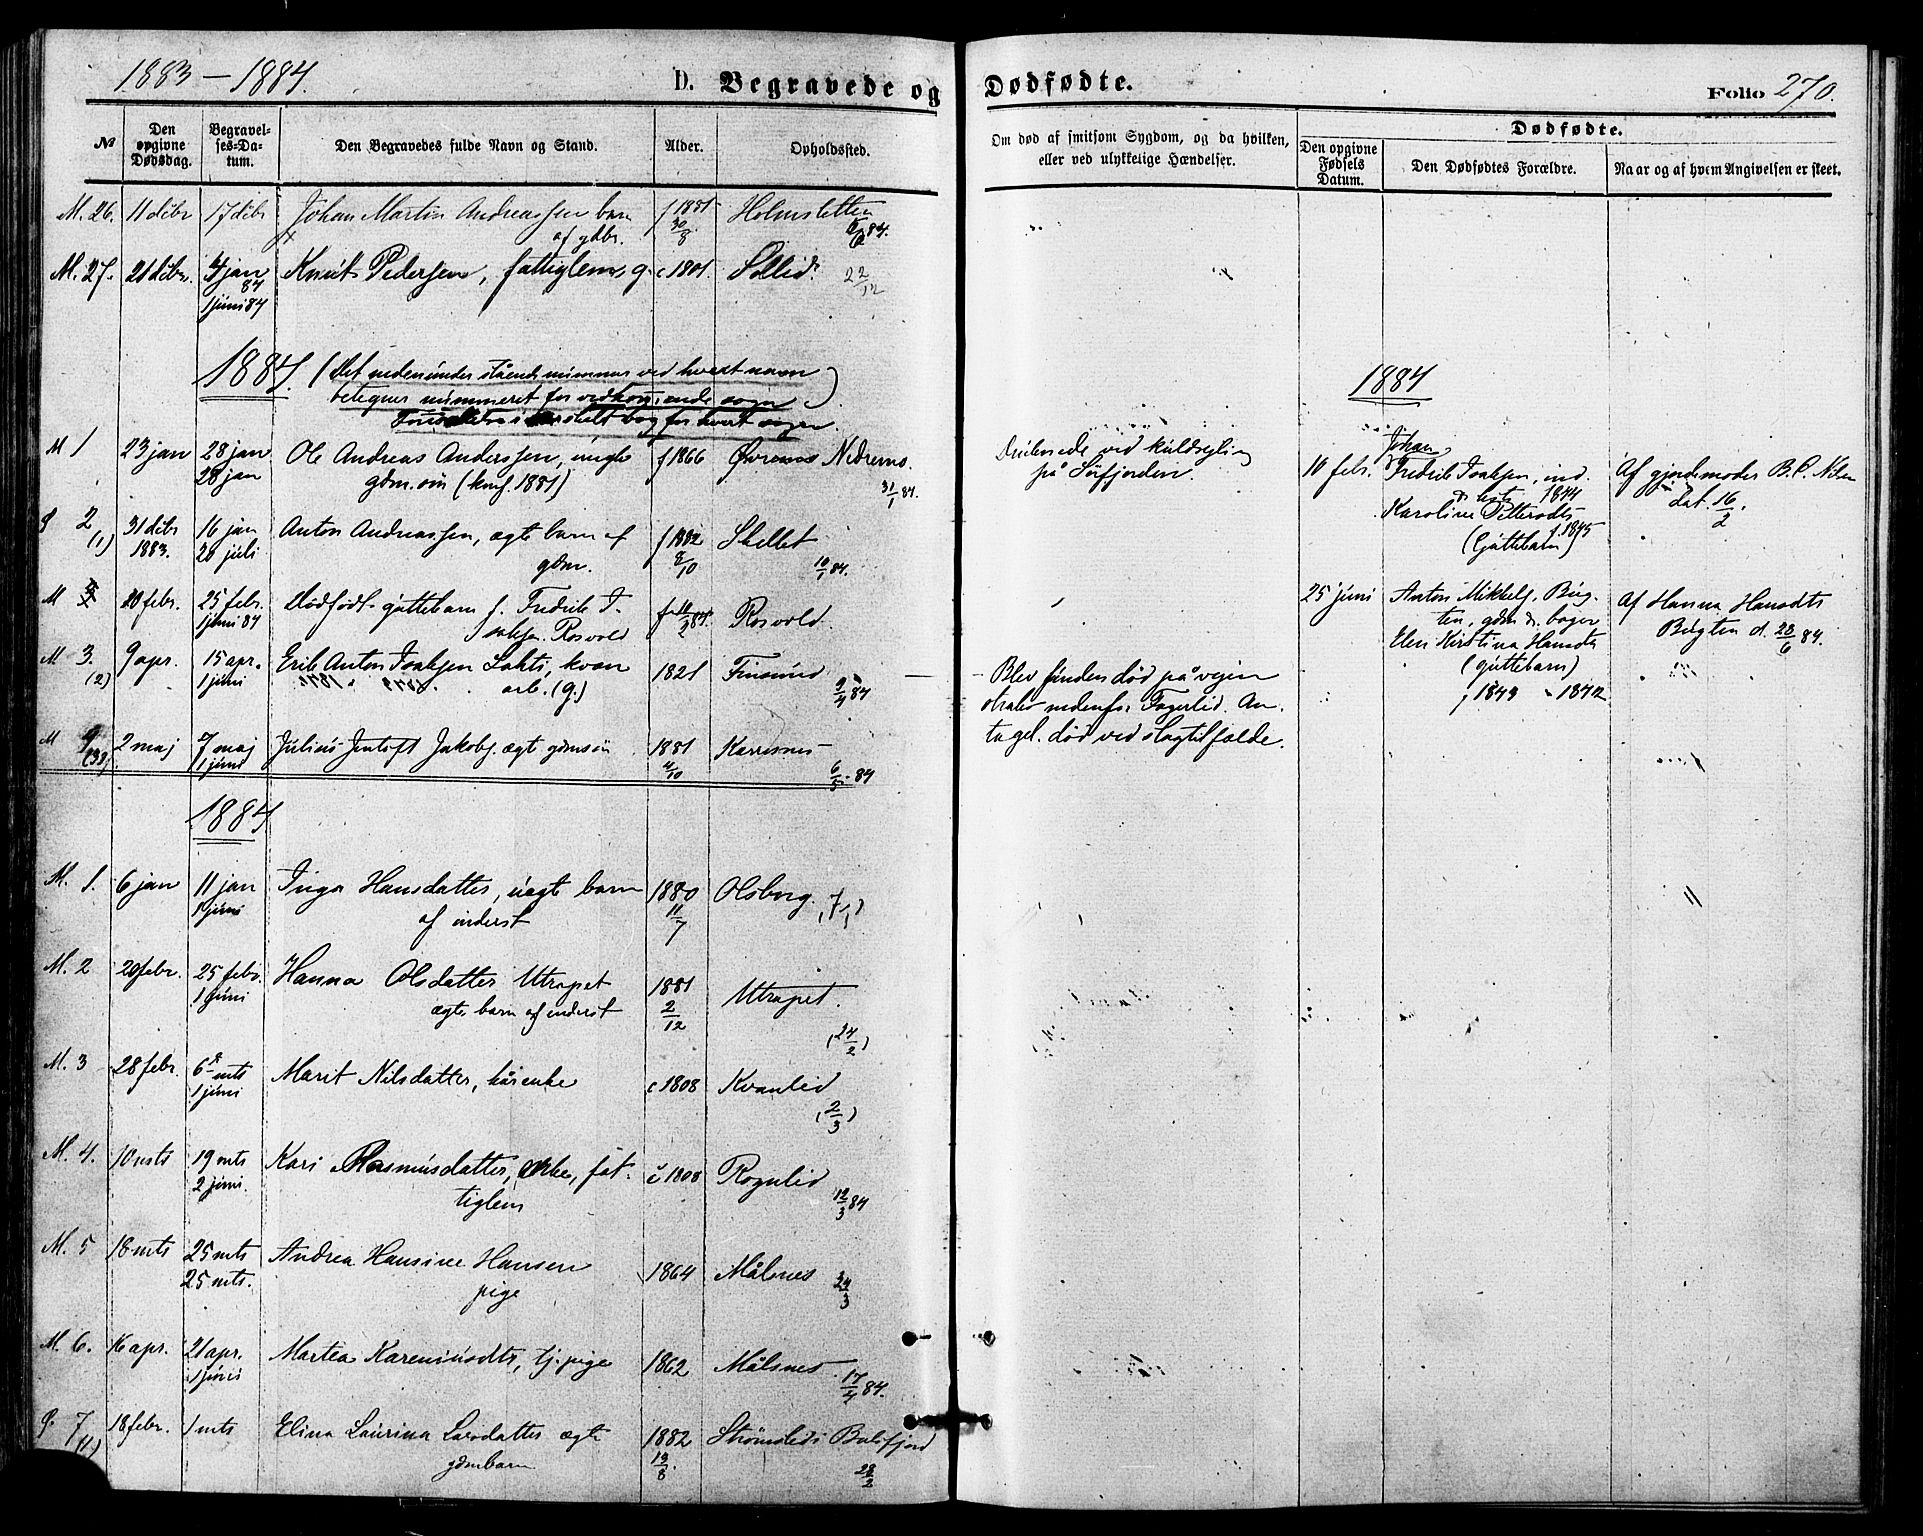 1883 – 1884.
D. Begravede og
№
Den opgivne Dødsdag.
Begravelses-Datum.
Den Begravedes fulde Navn og Stand.
Alder.
Opholdssted.
M. 26. 11 dcbr 17 dcbr Johan Martin Andreassen barn f 1881 Holmsletten
af gdbr. 30/8 84.
M. 27. 21 dcbr. 4 jan Knut Pedersen, fattiglem, g. c 1801 Sollid 22/12
84
1 juni 84
1884. (Det nedenunder stående nummer ved hvert navn
betegner nummeret for vedkommende sogn.)
for hvert sogn.
M 1 23 jan 28 jan Ole Andreas Anderssen, ungk. f 1866 Øvrenes Nedremo.
28 jan gdm. søn (konf. 1881) 31/1 84.
2 31 dcbr 16 jan Anton Andreassen, ægte barn af f 1882 Skellet
(1) 1883. 20 juli gdm. 8/10 10/1 84.
M 20 febr. 25 febr. Dødfødt guttebarn f. Fredrik I-
1 juni 84 saksen Rosvold 84. Rosvold.
M 3. 9 apr. 15 apr. Erik Anton Isaksen Lahti, kvæn 1821 Finsund
(2) 1 juni arb. (g.) 9/4 84
M 2 maj 7 maj Julius Jentoft Jakobs. ægt gdmsøn 1881 Karresnes
1 juni 4/10 6/5 84
1884
M. 1. 6 jan 11 jan Inga Hansdatter, uægte barn 1880 Olsborg.
1 juni af inderst 11/7
M. 2 20 febr. 25 febr. Hanna Olsdatter Utrapet 1881 Utrapet.
1 juni ægte barn af inderst 2/12 (24/2)
M. 3 28 febr. 6 mts Marit Nilsdatter, kårenke c 1808 Kvanlid
1 juni (2/3)
M. 4. 10 mts 19 mts Kari Rasmusdatter, enke, fat- c 1808 Rognlid
2 juni. tiglem 12/3 84
M. 5 18 mts 25 mts Andrea Hansine Hansen 1864 Målsnes
25 mts. pige 24/3
M. 6. 16 apr. 21 apr. Martea Kareniusdtr, tj. pige 1862 Målsnes
1 juni 17/4 84.
7 18 febr. 1 mts Elina Laurina Larsdatter ægte 1882 Strømslid i Balsfjord
(1) gdmbarn 19/8 28/2
Dødfødte.
Folio 270.
Om død af smitsom Sygdom, og da hvilken,
eller ved ulykkelige Hændelser.
Dødfødte.
Den opgivne Fødsels Datum.
Den Dødfødtes Forældre.
Naar og af hvem Angivelsen er skeet.
1884
Druknede ved kuldseyling
på Sørfjorden.
16 febr. Johan
Fredrik Isaksen, ind.
1844
Karoline Pettersdtr
f. 1845
(Guttebarn)
Af gjordemoder B. P. Nilsen
dat. 16/2.
25 juni Anton Mikkels. Big-
ten, gdm d. boger
Elen Kirstina Hansdtr
(guttebarn)
f 1843 1842
Af Hanna Hansdtr
Bigten d. 28/6 84.
Blev funden død på vejen
strax nedenfor Fagerlid. An-
tagel. død ved slagtilfælde.